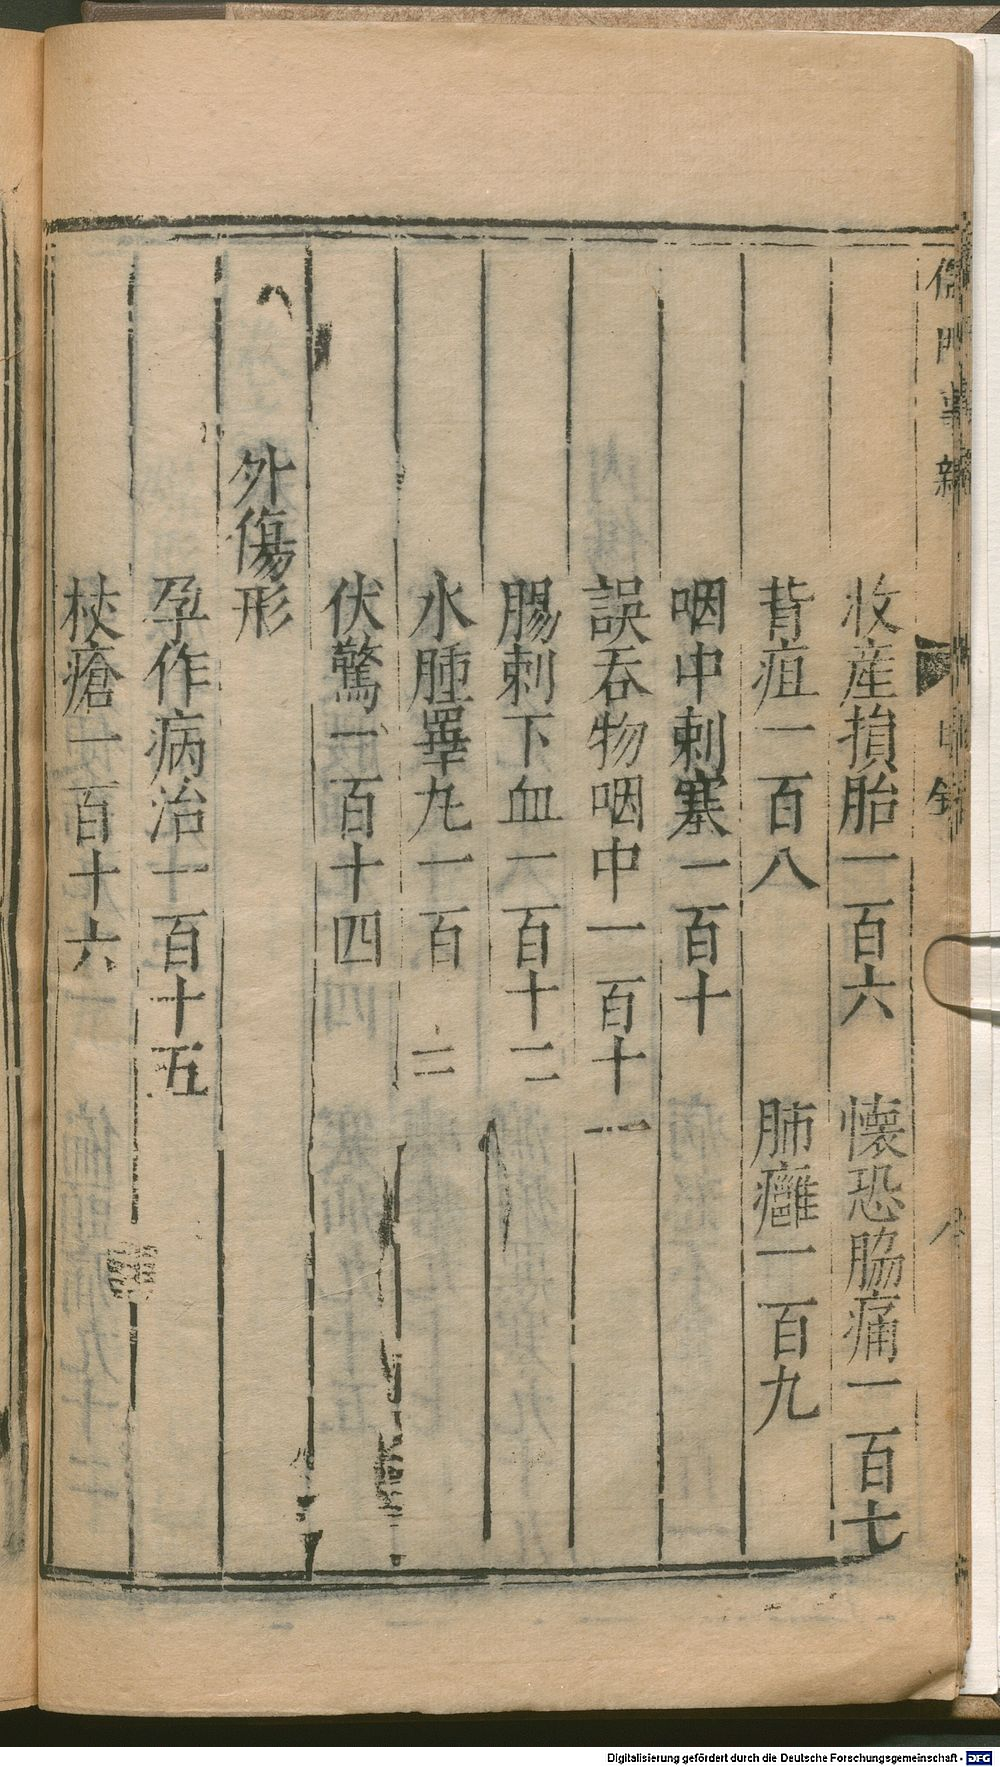 儒門事親
目錄
八
收產損胎一百六　懷恐脇痛一百七
背疽一百八　肺癰一百九
咽中刺塞一百十
誤吞物咽中一百十一
腸刺下血一百十二
水腫睪丸一百　三
伏驚一百十四
外傷形
孕作病治一百十五
杖瘡一百十六
Digitalisierung gefördert durch die Deutsche Forschungsgemeinschaft - DFG